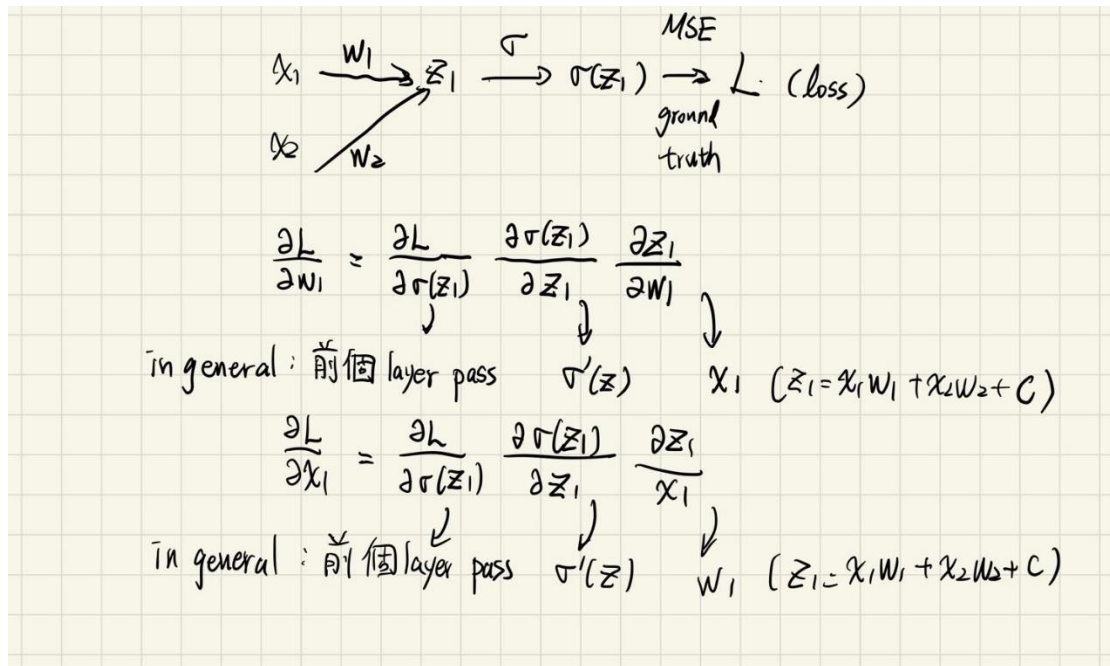 x₁ —W₁→ z₁ —σ→ σ(z₁) —MSE→ L. (loss)
ground
x₂ W₂ truth
∂L/∂w₁ = ∂L/∂σ(z₁) ∂σ(z₁)/∂z₁ ∂z₁/∂w₁
in general : 前個 layer pass σ'(z) x₁ (z₁ = x₁w₁ + x₂w₂ + C)
∂L/∂x₁ = ∂L/∂σ(z₁) ∂σ(z₁)/∂z₁ ∂z₁/x₁
in general : 前個 layer pass σ'(z) w₁ (z₁ = x₁w₁ + x₂w₂ + C)